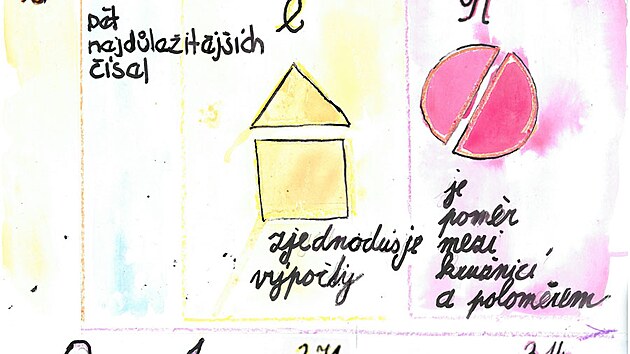 pět
najdůležitějších
čísel
e
π
zjednodušje
výpočty
je
poměr
mezi
kružnicí
a poloměrem